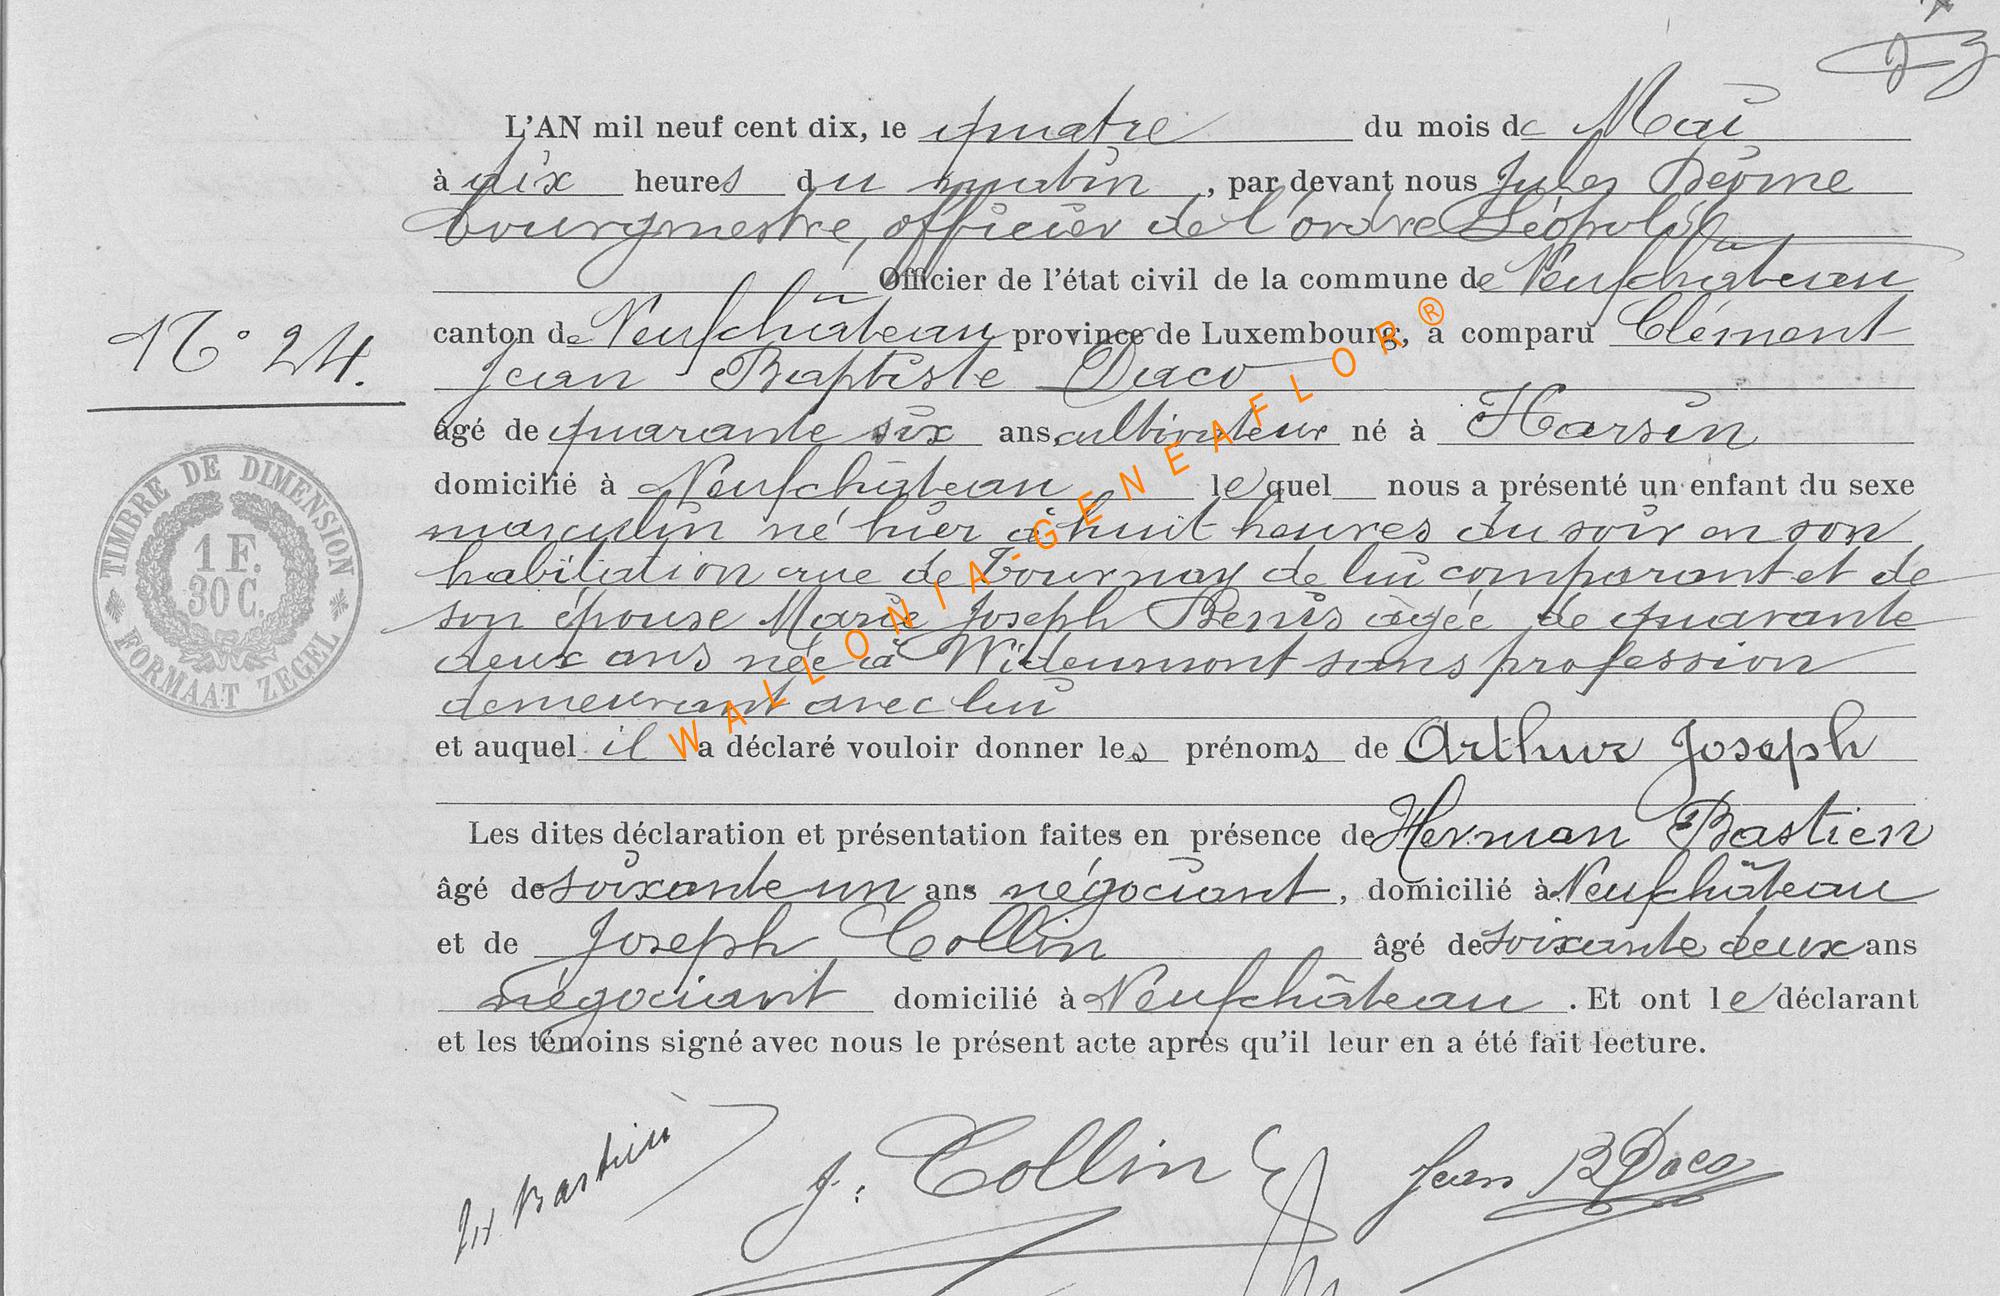 L'AN mil neuf cent dix, le quatre du mois de Mai
à dix heures du matin, par devant nous Jules
bourgmestre, officier de l'ordre Léopold
Officier de l'état civil de la commune de Neufchâteau
N° 24.
canton de Neufchâteau province de Luxembourg, a comparu Clément
Jean Baptiste Daco
âgé de quarante six ans, cultivateur né à Harsin
domicilié à Neufchâteau lequel nous a présenté un enfant du sexe
masculin né hier à huit heures du soir en son
habitation rue de Tournay de lui comparant et de
son épouse Marie Joseph agée de quarante
deux ans née à Wideumont sans profession
demeurant avec lui
et auquel il a déclaré vouloir donner les prénoms de Arthur Joseph
Les dites déclaration et présentation faites en présence de Herman Bastien
âgé de soixante un ans négociant, domicilié à Neufchâteau
et de Joseph Collin âgé de soixante deux ans
négociant domicilié à Neufchâteau. Et ont le déclarant
et les témoins signé avec nous le présent acte après qu'il leur en a été fait lecture.
TIMBRE DE DIMENSION
1 F.
30 C.
FORMAAT ZEGEL
WALLONIA-GENEAFLOR®
H Bastien
J. Collin
Jean B Daco